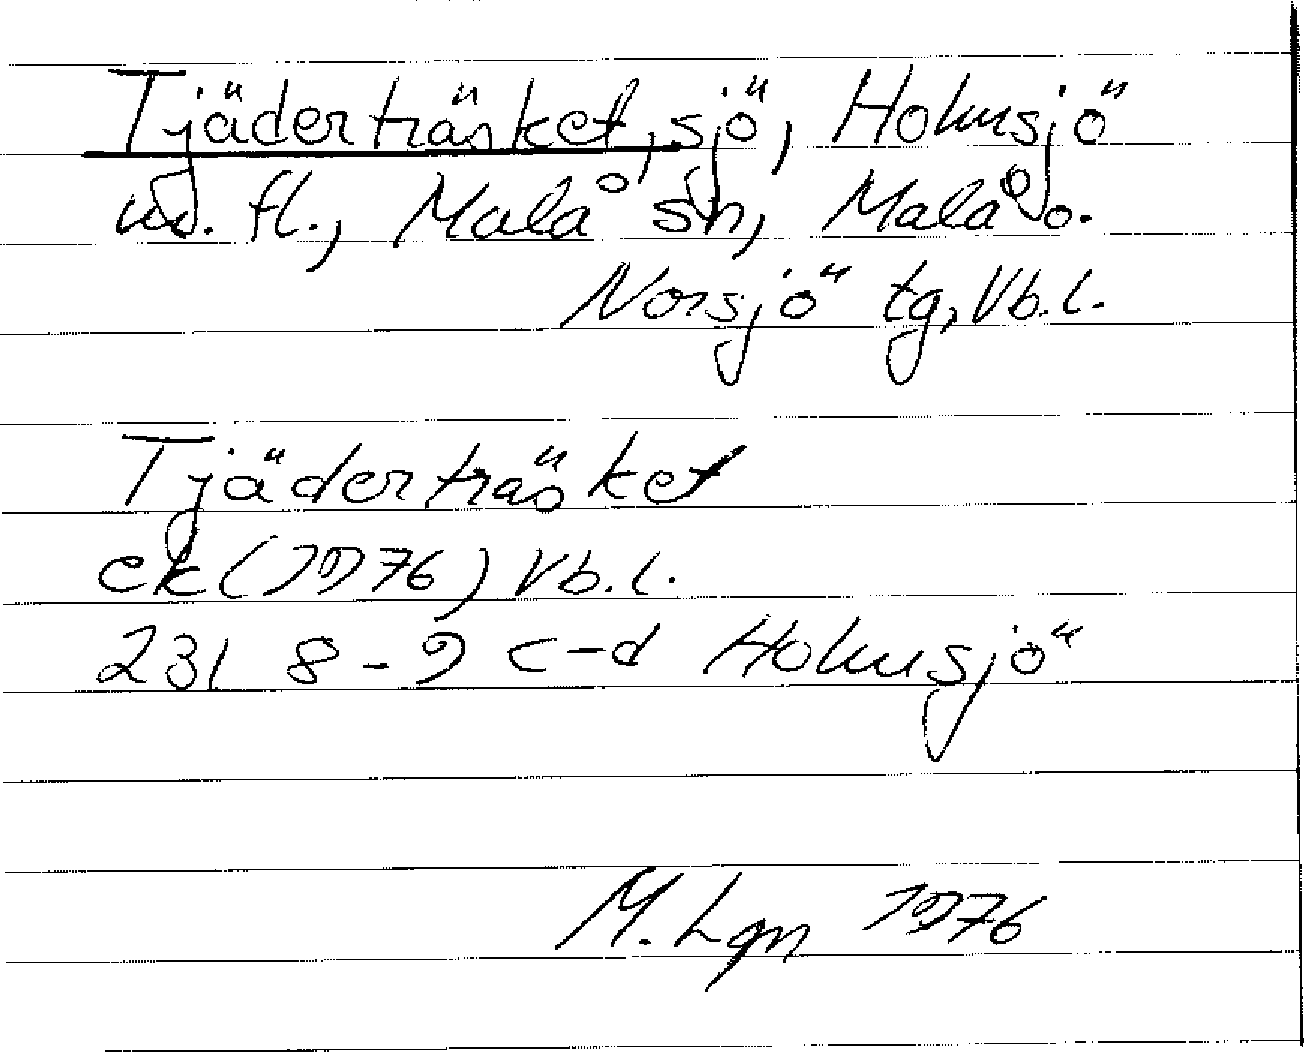 Tjäderträsket, sjö, Holmsjö
m. fl., Malå sn, Malå o.
Norsjö tg, Vb.l.
Tjäderträsket
ek (1976) Vb.l.
23I 8-9 c-d Holmsjö
M. Lgn 1976